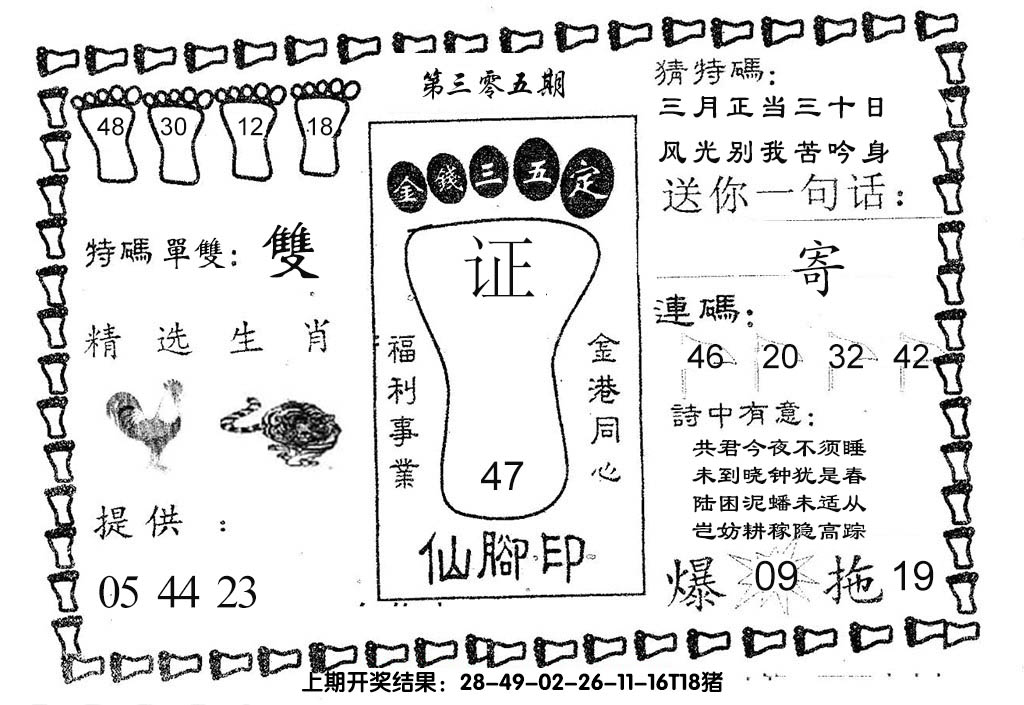 第三零五期
48 30 12 18
特碼單雙：雙
精选生肖
提供：
05 44 23
金錢三五定
证
福利事業
金港同心
47
仙腳印
猜特碼：
三月正当三十日
风光别我苦吟身
送你一句话：
寄
連碼：
46 20 32 42
詩中有意：
共君今夜不须睡
未到晓钟犹是春
陆困泥蟠未适从
岂妨耕稼隐高踪
爆 09 拖 19
上期开奖结果：28-49-02-26-11-16T18猪